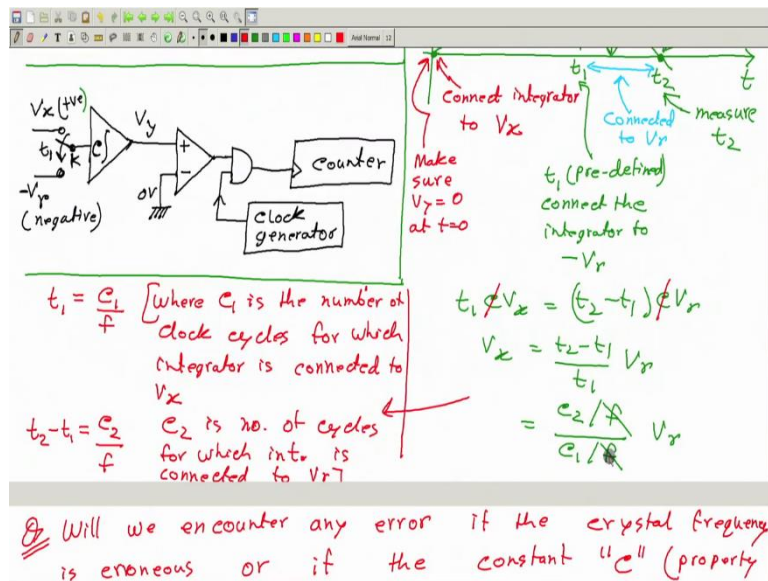 Arial Normal 12
Vx (+ve)
t1
k
-Vr
(negative)
e∫
Vy
+
-
0V
counter
clock
generator
t1 = C1/f [where C1 is the number of
clock cycles for which
integrator is connected to
Vx
t2-t1 = C2/f C2 is no. of cycles
for which int. is
connected to Vr]
t1
t2
t
Connect integrator
to Vx
Make
sure
Vy = 0
at t=0
Connected
to Vr
measure
t2
t1 (pre-defined)
connect the
integrator to
-Vr
t1 c Vx = (t2-t1) c Vr
Vx = t2-t1/t1 Vr
= C2/f / C1/f Vr
Q Will we encounter any error if the crystal frequency
is erroneous or if the constant "c" (property